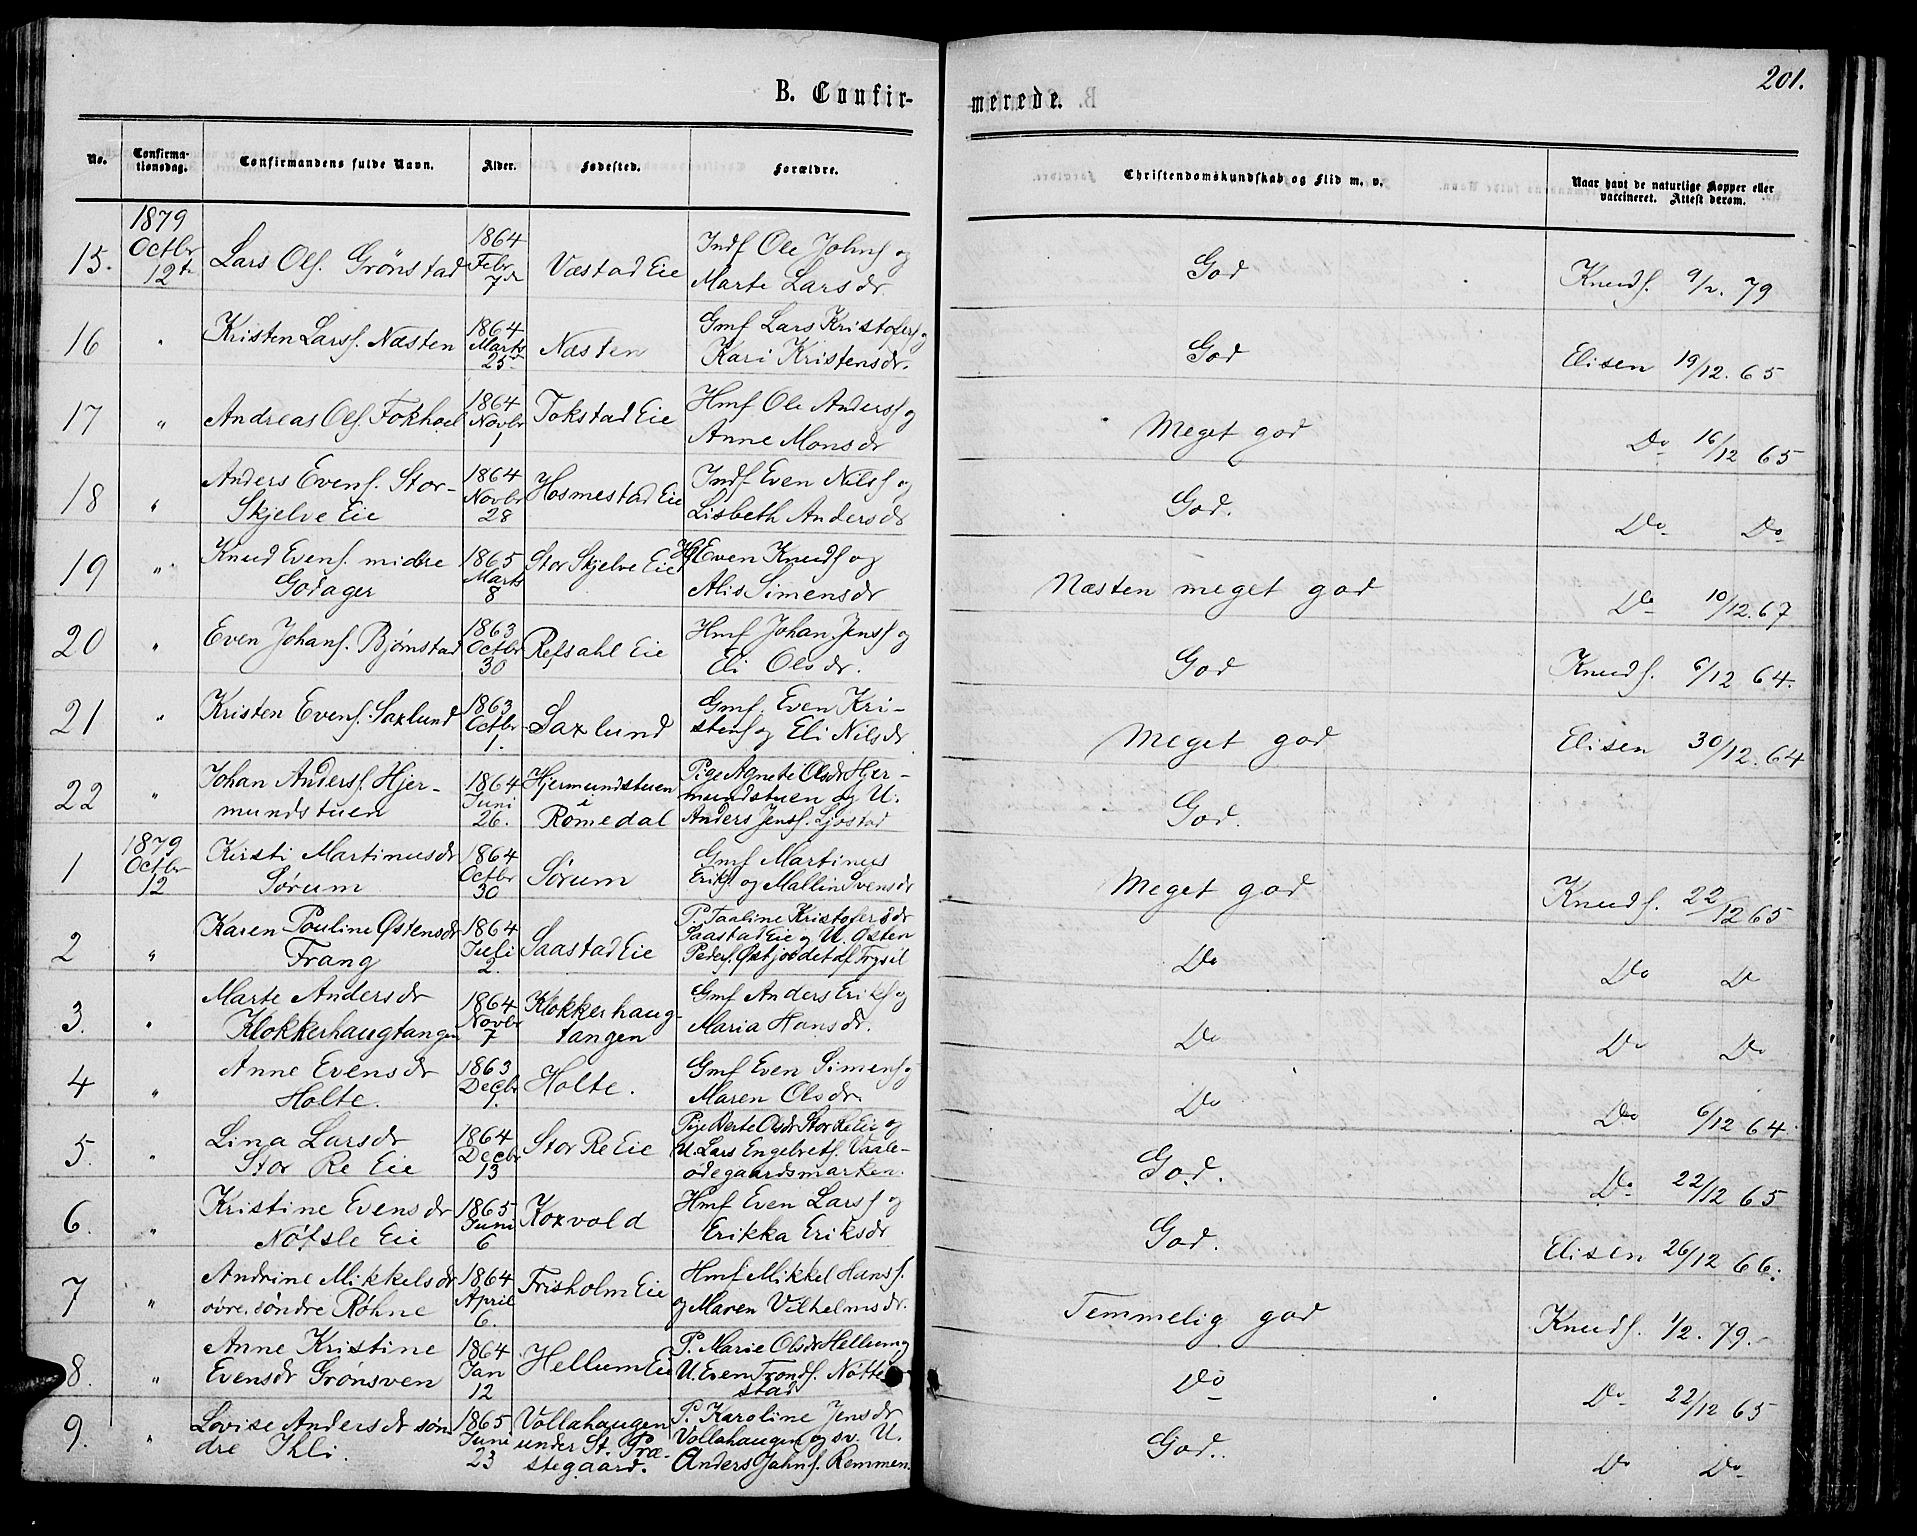 B. Confir-
merede.
201.
No. Confirma-tionsdag. Confirmandens fulde Navn. Alder. Fødested. Forældre. Christendomskundskab og Flid m. v. Naar havt de naturlige Kopper eller vaccineret. Attest derom.
1879
15. Octbr 12te Lars Ols. Grønstad 1864 Febr 7de Væstad Eie Inds Ole Johns og Marte Larsdr. God Knuds. 9/2. 79
16 " Kristen Larss. Næsten 1864 Marts 25. Næsten Gmf Lars Kristofers og Kari Kristensdr. God Elisen 19/12. 65
17 " Andreas Ols. Fokhoel 1864 Novbr 1 Tokstad Eie Hmf Ole Anderss og Anne Monsdr Meget god Do 16/12 65
18 " Anders Evens. Stor-Skjelve Eie 1864 Novbr 28 Hosmestad Eie Inds Even Nilss og Lisbeth Andersdr God. Do Do
19 " Knud Evens. midtre Godager 1865 Marts 8 Stor Skjelve Eie Hf Even Knuds og Alis Simensdr Næsten meget god Do 10/12. 67
20 " Even Johans. Bjørnstad 1863 Octbr 30 Refsahl Eie Hmf Johan Jenss og Eli Olsdr. God Knuds. 6/12 64.
21 " Kristen Evens. Saxlund 1863 Octbr 1. Saxlund Gmf. Even Kri-stens og Eli Nilsdr Meget god Elisen 30/12. 64
22 " Johan Anderss. Hjer-mundstuen 1864 Juni 26. Hjermundstuen i Romedal Pige Agnete Olsdr Hjer-mundstuen og U. Anders Jenss. Ljøstad God.
1 1879 Octbr 12 Kirsti Martinusdr Sørum 1864 Octbr 30 Sørum Gmf Martinus Eriks og Mallin Svensdr Meget god Knuds. 22/12 65
2 " Karen Pouline Østensdr Frang 1864 Juli 2. Saastad Eie P. Taaline Kristofersdr Saastad Eie og U. Østen Peders. Østjordet af Trysil Do Do Do
3. " Marte Andersdr Klokkerhaugtangen 1864 Novbr 7 Klokkerhaug-tangen Gmf Anders Eriks og Maria Hansdr. Do Do Do
4 " Anne Evensdr Holte. 1863 Decbr 1. Holte. Gmf Even Simens og Maren Olsdr. Do Do 6/12 64
5. " Lina Larsdr Stor Re Eie 1864 Decbr 13 Stor Re Eie Pige Berte Olsdr Stor Re Eie og U. Lars Engebrets. Vaale-ødegaardsmarken. God. Do 22/12 65
6. " Kristine Evensdr Nøtsle Eie 1865 Juni 6 Koxvold Hmf Even Larss og Erikka Eriksdr God. Elisen 26/12 66.
7 " Andrine Mikkelsdr øvre, søndre Røhne 1864 April 6. Frisholm Eie Hmf Mikkel Hans. og Maren Vilhelmsdr. Temmelig god Knuds. 1/2. 79.
8. " Anne Kristine Evensdr Grønsven 1864 Jan 12 Hellum Eie P. Marie Olsdr Hellum og U. Even Tronds. Nøtte-stad Do Do 22/12 65
9. " Lovise Andersdr søn-dre Ihli. 1865 Juni 23 Vollahaugen under St. Præ-stegaard. P. Karoline Jensdr Vollahaugen og sv. U. Anders Johns. Remmen. God. Do Do